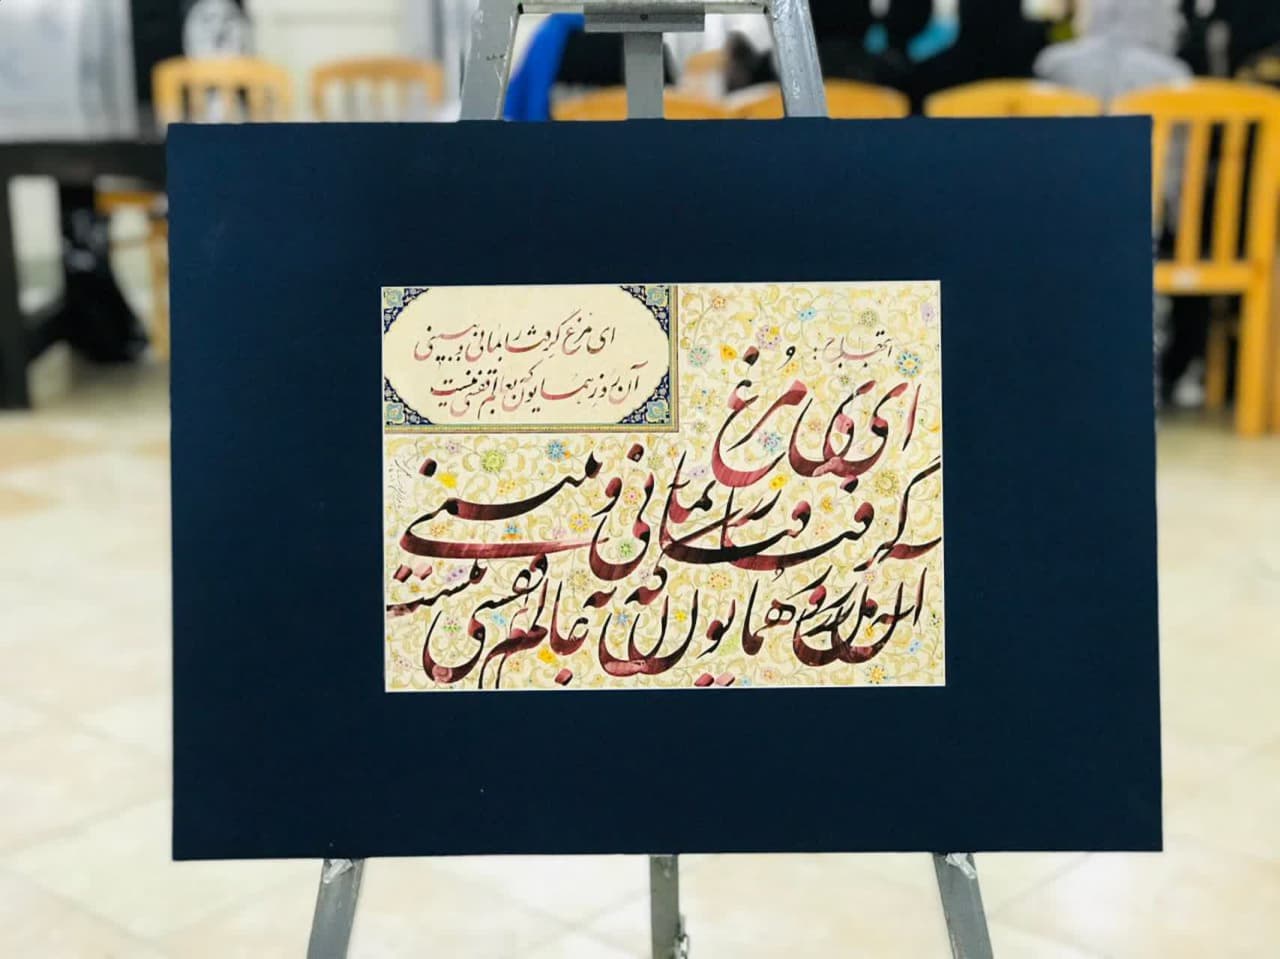 ای مرغ گرفتار بمانی و ببینی
آن روز همایون که بعالم قفسی نیست
ای مرغ
گرفتار بمانی و ببینی
آن روز همایون که به عالم قفسی نیست